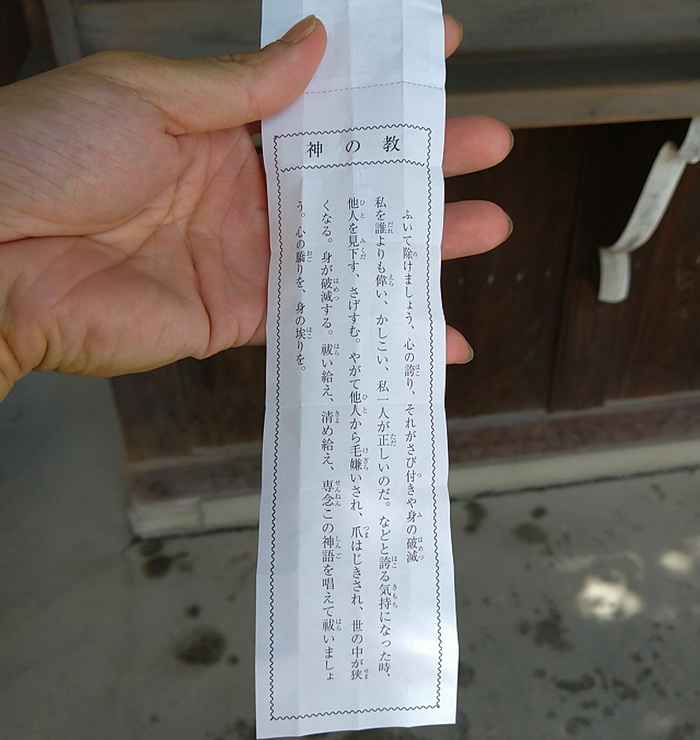 神の教
ふいて除けましょう、心の誇り、それがさび付きや身の破滅
私を誰よりも偉い、かしこい、私一人が正しいのだ。などと誇る気持になった時、
他人を見下す、さげすむ。やがて他人から毛嫌いされ、爪はじきされ、世の中が狭
くなる。身が破滅する。祓い給え、清め給え、専念この神語を唱えて祓いましょ
う。心の驕りを、身の埃りを。